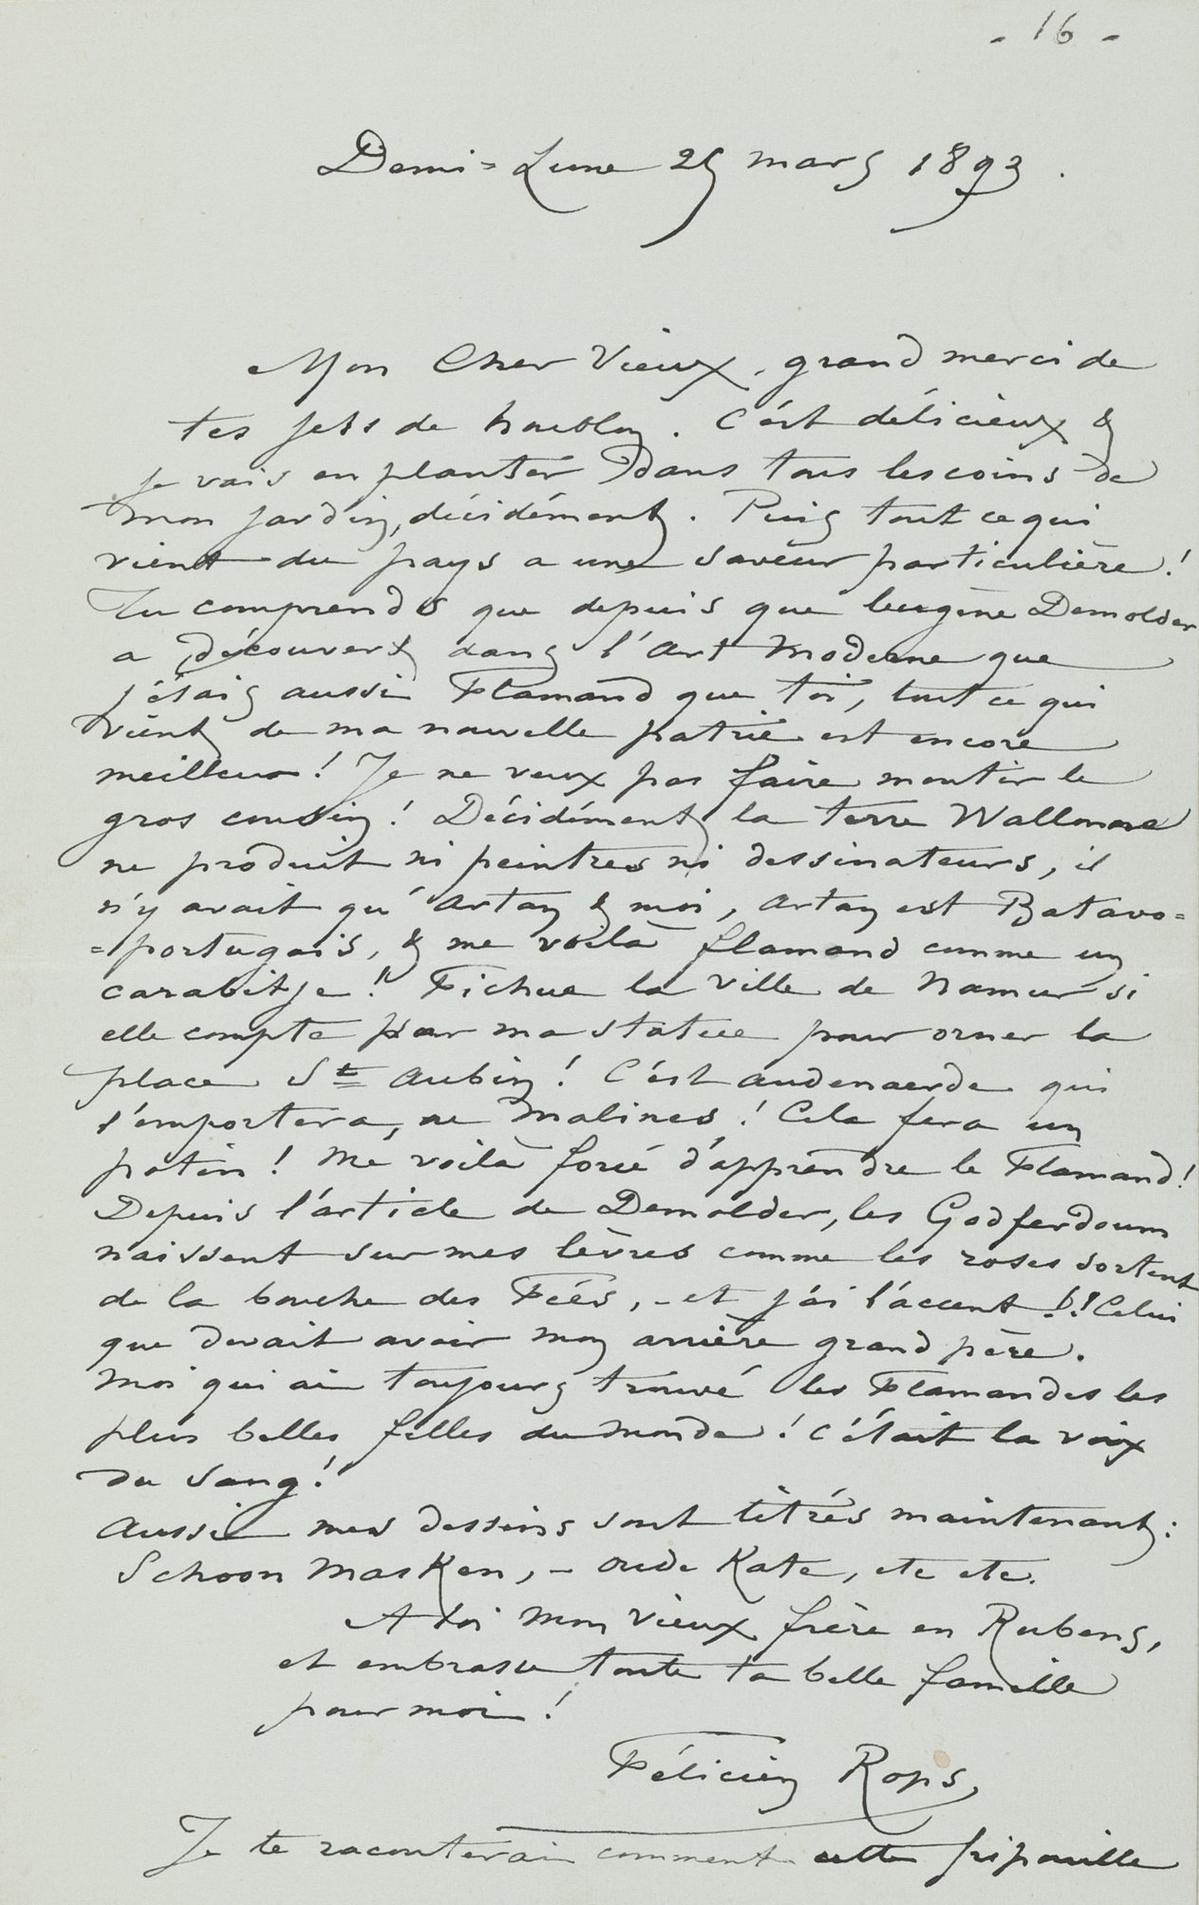 - 16 -
Demi=Lune 25 mars 1893.
Mon Cher Vieux, grand merci de
tes jets de houblon. C'est délicieux &
je vais en planter dans tous les coins de
mon jardin, décidément. Puis tout ce qui
vient du pays a une saveur particulière !
Tu comprends que depuis que Eugène Demolder
a découvert dans l'Art Moderne que
j'étais aussi Flamand que toi, tout ce qui
vient de ma nouvelle patrie est encore
meilleur ! Je ne veux pas faire mentir le
gros cousin ! Décidément la terre Wallonne
ne produit ni peintres ni dessinateurs, il
n'y avait qu'Artan & moi, Artan est Batavo=
=portugais, & me voilà flamand comme un
carabitje ! Fichue la ville de Namur si
elle compte par ma statue pour orner la
place St Aubin ! C'est Audenaerde qui
l'emportera, ou Malines ! Cela fera un
potin ! Me voilà forcé d'apprendre le Flamand !
Depuis l'article de Demolder, les Godferdoum
naissent sur mes lèvres comme les roses sortent
de la bouche des Fées, - et j'ai l'accent !! Celui
que devait avoir mon arrière grand père.
Moi qui ai toujours trouvé les Flamandes les
plus belles filles du monde ! C'était la voix
du sang !
Aussi mes dessins sont titrés maintenant :
Schoon Masken, - Oude Kate, etc etc.
A toi mon vieux frère en Rubens,
et embrasse toute ta belle famille
pour moi !
Félicien Rops,
Je te raconterai comment cette fripouille